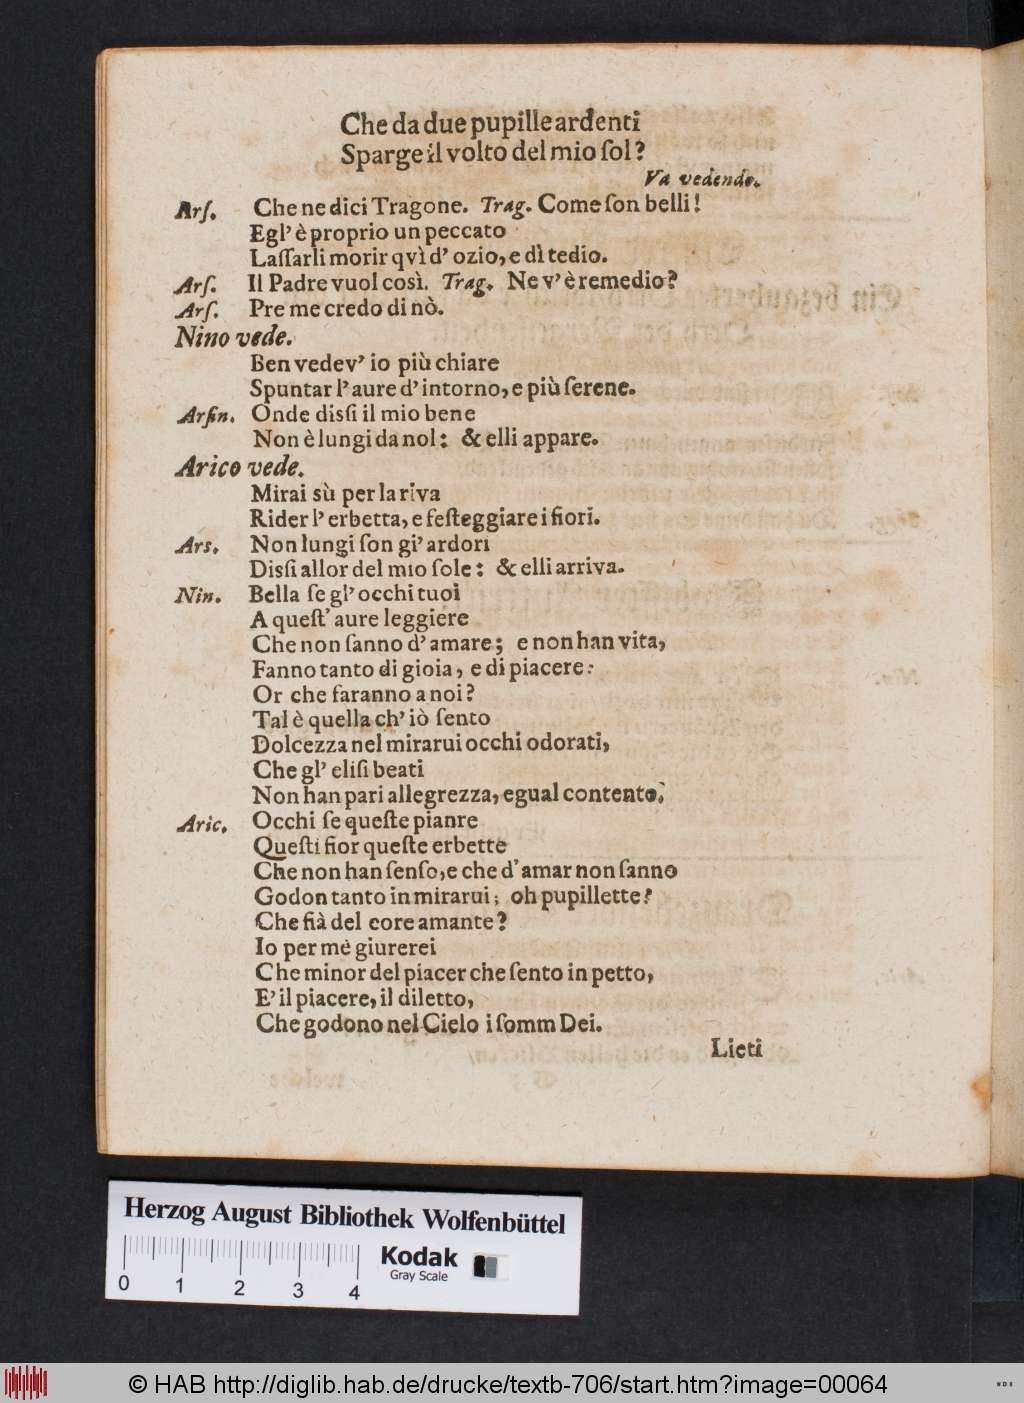 Che da due pupille ardenti
Sparge il volto del mio ſol?
Va vedendo.
Arſ. Che ne dici Tragone. Trag. Come ſon belli!
Egl' è proprio un peccato
Laſſarli morir qvì d' ozio, e dì tedio.
Arſ. Il Padre vuol così. Trag. Ne v' è remedio?
Arſ. Pre me credo di nò.
Nino vede.
Ben vedev' io più chiare
Spuntar l' aure d' intorno, e più ſerene.
Arſin. Onde disſi il mio bene
Non è lungi da noI: & elli appare.
Arico vede.
Mirai sù per la riva
Rider l' erbetta, e feſteggiare i fiori.
Ars. Non lungi ſon gi' ardori
Disſi allor del mio ſole: & elli arriva.
Nin. Bella ſe gl' occhi tuoi
A queſt' aure leggiere
Che non ſanno d' amare; e non han vita,
Fanno tanto di gioia, e di piacere:
Or che faranno a noi?
Tal è quella ch' iò ſento
Dolcezza nel mirarui occhi odorati,
Che gl' eliſi beati
Non han pari allegrezza, egual contento.
Aric. Occhi ſe queſte pianre
Queſti fior queſte erbette
Che non han ſenſo, e che d' amar non ſanno
Godon tanto in mirarui; oh pupillette!
Che fià del core amante?
Io per mè giurerei
Che minor del piacer che ſento in petto,
E' il piacere, il diletto,
Che godono nel Cielo i ſomm Dei.
Lieti
Herzog August Bibliothek Wolfenbüttel
Kodak
Gray Scale
0 1 2 3 4
© HAB http://diglib.hab.de/drucke/textb-706/start.htm?image=00064